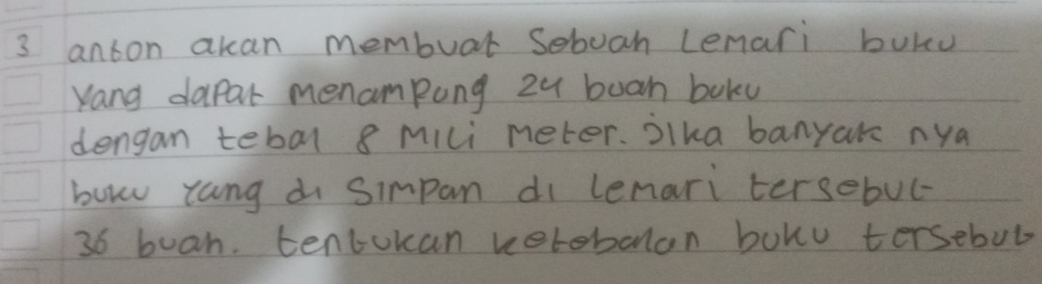 3 anton akan membuat sebuah Lemari buku
Yang dapat menampung 24 buah buku
dengan tebal 8 Mili meter. jika banyak nya
buku yang di simpan di lemari tersebut
36 buah. tentukan ketebalan buku tersebut